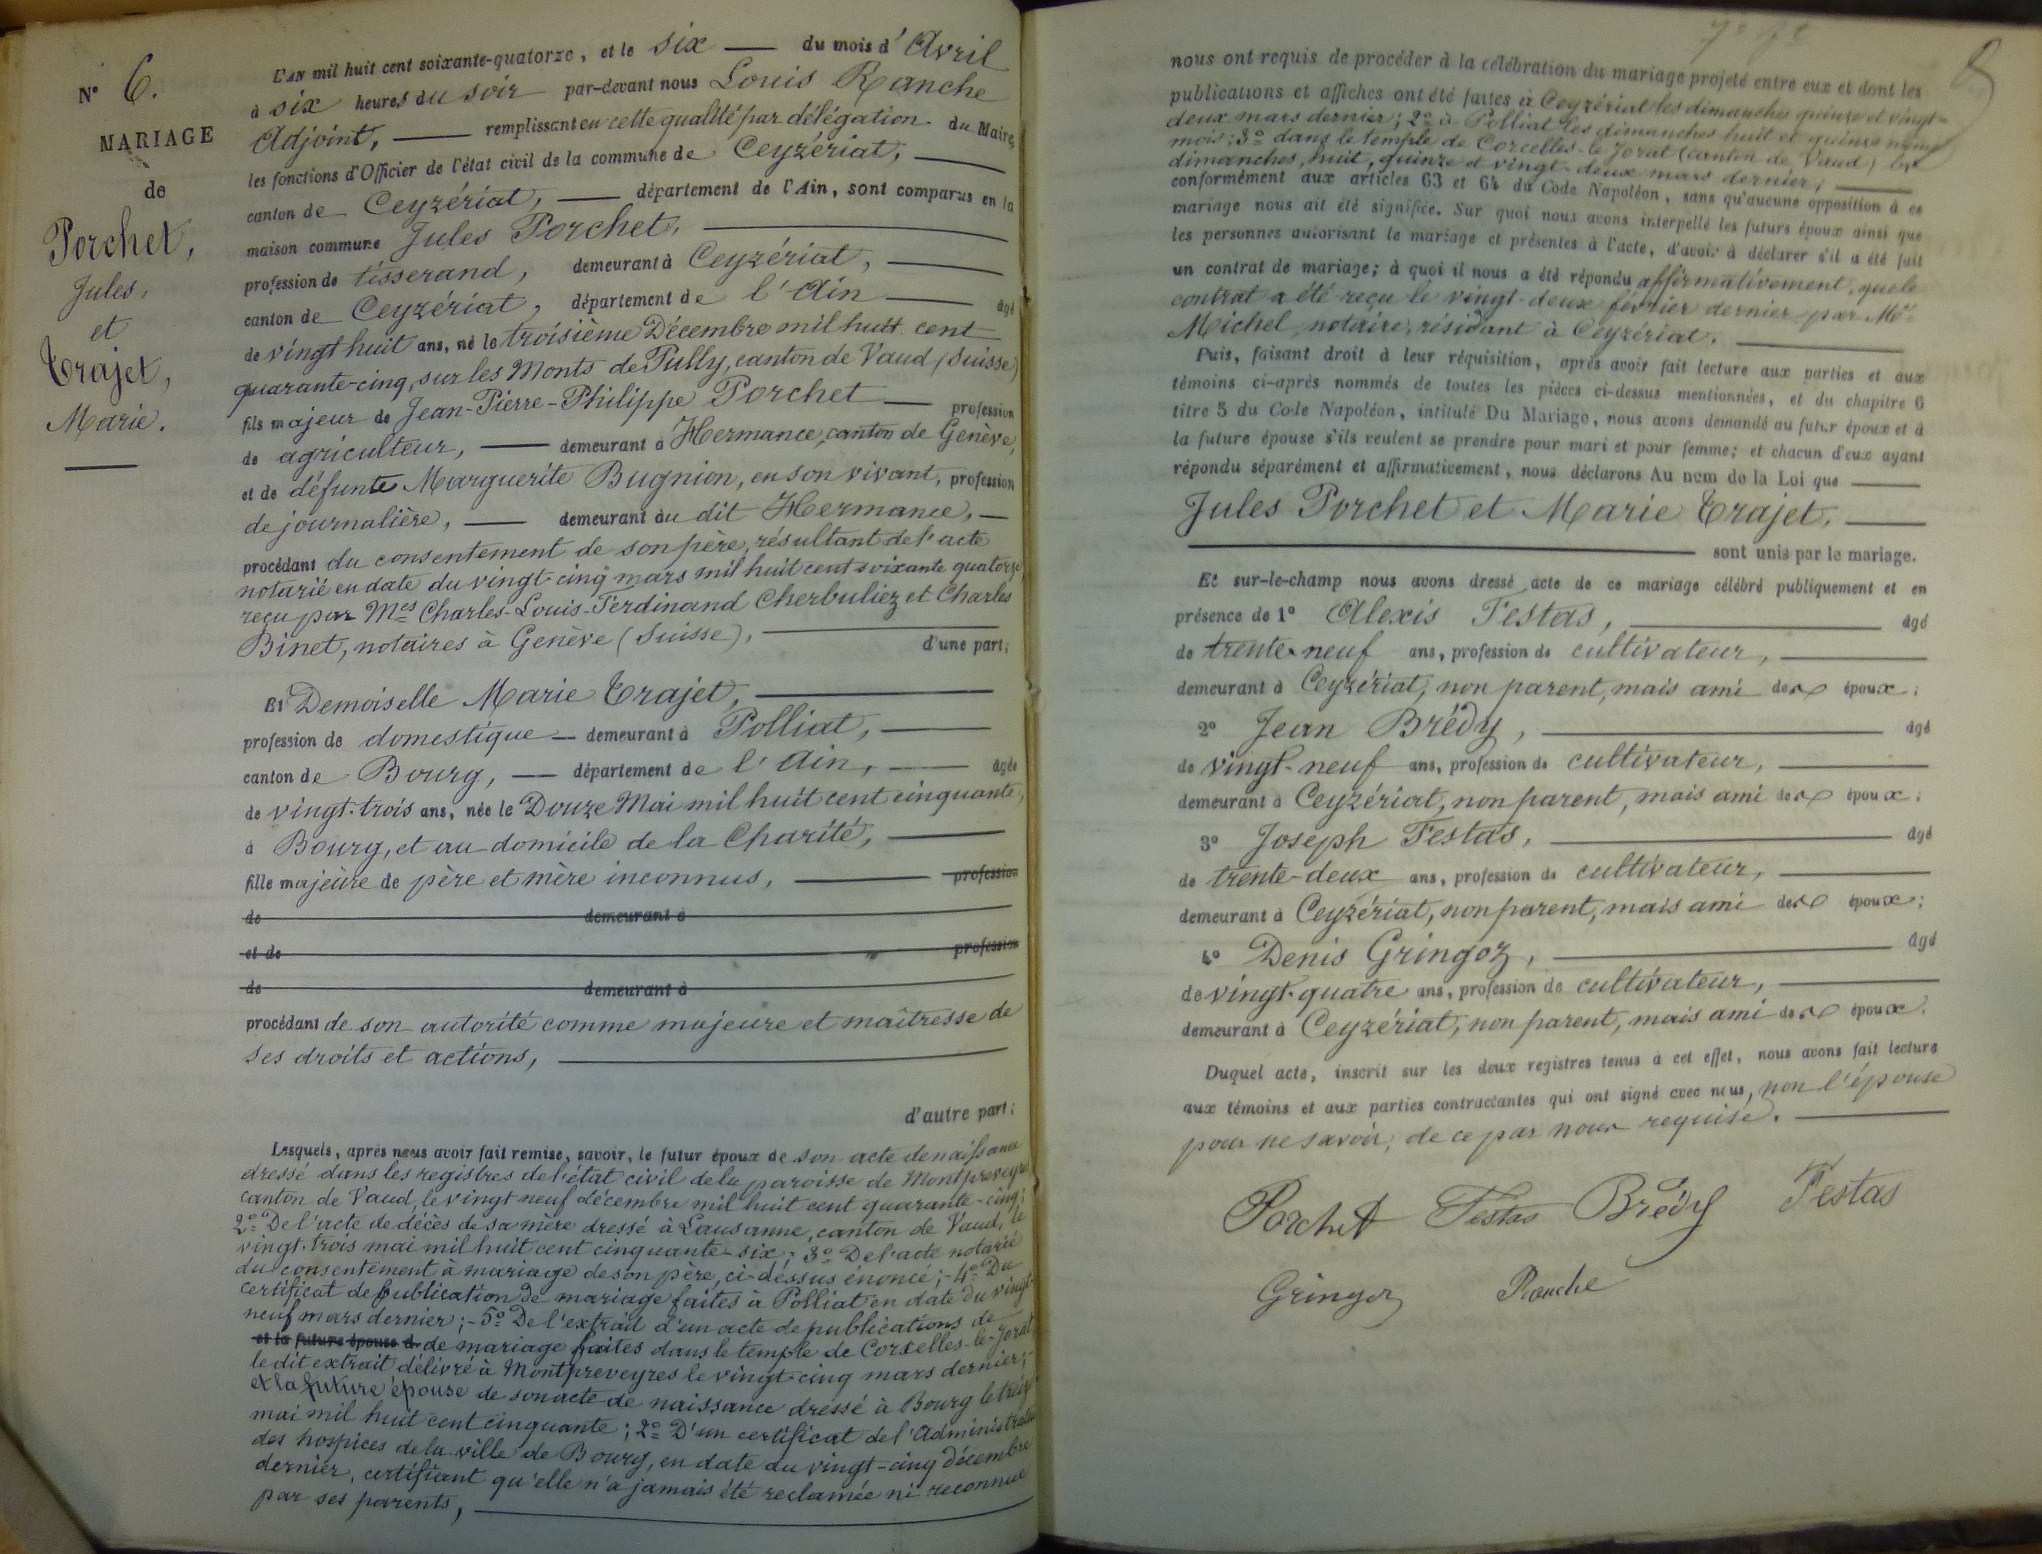 N° 6.
MARIAGE
de
Porchet,
Jules,
et
Trajet,
Marie.
L'AN mil huit cent soixante-quatorze, et le six du mois d'Avril
à six heures du soir par-devant nous Louis Ranche
Adjoint, remplissant en cette qualité par délégation du Maire,
les fonctions d'Officier de l'état civil de la commune de Ceyzériat,
canton de Ceyzériat, département de l'Ain, sont comparus en la
maison commune Jules Porchet,
profession de tisserand, demeurant à Ceyzériat,
canton de Ceyzériat, département de l'Ain âgé
de vingt huit ans, né le troisième Décembre mil huit cent
quarante-cinq, sur les Monts de Pully, canton de Vaud (Suisse)
fils majeur de Jean-Pierre-Philippe Porchet profession
de agriculteur, demeurant à Hermance, canton de Genève,
et de défunte Marguerite Bugnion, en son vivant, profession
de journalière, demeurant au dit Hermance,
procédant du consentement de son père, résultant de l'acte
notarié en date du vingt-cinq mars mil huit cent soixante quatorze,
reçu par Mes Charles-Louis-Ferdinand Cherbuliez et Charles
Binet, notaires à Genève (Suisse), d'une part;
Et Demoiselle Marie Trajet,
profession de domestique demeurant à Polliat,
canton de Bourg, département de l'Ain, âgée
de vingt-trois ans, née le Douze Mai mil huit cent cinquante,
à Bourg, et au domicile de la Charité,
fille majeure de père et mère inconnus, profession
de demeurant à
et de profession
de demeurant à
procédant de son autorité comme majeure et maîtresse de
ses droits et actions,
d'autre part;
Lesquels, après nous avoir fait remise, savoir, le futur époux de son acte de naissance
dressé dans les registres de l'état civil de la paroisse de Montpreveyres
canton de Vaud, le vingt neuf décembre mil huit cent quarante-cinq;
2° De l'acte de décès de sa mère dressé à Lausanne, canton de Vaud, le
vingt-trois mai mil huit cent cinquante-six; 3° De l'acte notarié
du consentement à mariage de son père, ci-dessus énoncé; - 4° Du
certificat de publication de mariage faites à Polliat en date du vingt-
neuf mars dernier; - 5° De l'extrait d'un acte de publications de
et la future épouse d de mariage faites dans le temple de Corcelles-le-Jorat
le dit extrait délivré à Montpreveyres le vingt-cinq mars dernier;
et la future épouse de son acte de naissance dressé à Bourg le treize
mai mil huit cent cinquante; 2° D'un certificat de l'Administration
des hospices de la ville de Bourg, en date du vingt-cinq décembre
dernier, certifiant qu'elle n'a jamais été reclamée ni reconnue
par ses parents,
nous ont requis de procéder à la célébration du mariage projeté entre eux et dont les
publications et affiches ont été faites à Ceyzériat les dimanches quinze et vingt-
deux mars dernier; 2° à Polliat les dimanches huit et quinze même
mois; 3° dans le temple de Corcelles-le-Jorat (canton de Vaud) les
dimanches, huit, quinze et vingt-deux mars dernier,
conformément aux articles 63 et 64 du Code Napoléon, sans qu'aucune opposition à ce
mariage nous ait été signifiée. Sur quoi nous avons interpellé les futurs époux ainsi que
les personnes autorisant le mariage et présentes à l'acte, d'avoir à déclarer s'il a été fait
un contrat de mariage; à quoi il nous a été répondu affirmativement, que le
contrat a été reçu le vingt-deux février dernier par Me
Michel, notaire, résidant à Ceyzériat.
Puis, faisant droit à leur réquisition, après avoir fait lecture aux parties et aux
témoins ci-après nommés de toutes les pièces ci-dessus mentionnées, et du chapitre 6
titre 5 du Code Napoléon, intitulé Du Mariage, nous avons demandé au futur époux et à
la future épouse s'ils veulent se prendre pour mari et pour femme; et chacun d'eux ayant
répondu séparément et affirmativement, nous déclarons Au nom de la Loi que
Jules Porchet et Marie Trajet,
sont unis par le mariage.
Et sur-le-champ nous avons dressé acte de ce mariage célébré publiquement et en
présence de 1° Alexis Festas, âgé
de trente-neuf ans, profession de cultivateur,
demeurant à Ceyzériat, non parent, mais ami des époux;
2° Jean Brédy, âgé
de vingt-neuf ans, profession de cultivateur,
demeurant à Ceyzériat, non parent, mais ami des époux;
3° Joseph Festas, âgé
de trente-deux ans, profession de cultivateur,
demeurant à Ceyzériat, non parent, mais ami des époux;
4° Denis Gringoz, âgé
de vingt-quatre ans, profession de cultivateur,
demeurant à Ceyzériat, non parent, mais ami des époux.
Duquel acte, inscrit sur les deux registres tenus à cet effet, nous avons fait lecture
aux témoins et aux parties contractantes qui ont signé avec nous, non l'épouse
pour ne savoir, de ce par nous requise.
Porchet Festas Brédy Festas
Gringoz Ranche